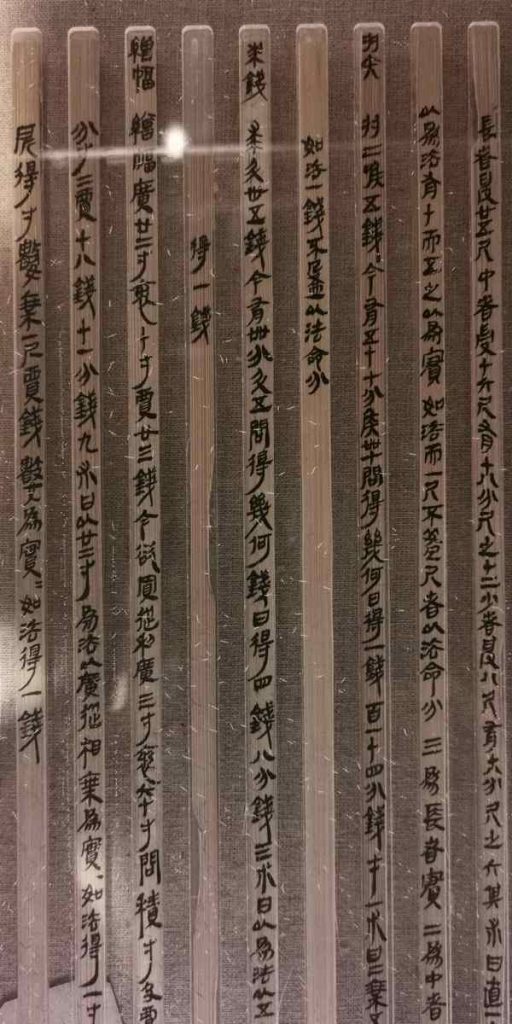 長者受廿五尺中者受十六尺有十八分尺之十二少者受八尺有十八分尺之六其朮曰直一
以為法有十而五之以為實如法而一尺不盈尺者以法命分三為長者實二為中者
羽矢 羽二喉五錢今有五十七分喉卅七問得幾何曰得一錢百一十四分錢七十一朮曰二乘五
如法一錢不盈以法命分
桼錢 桼斗卅五錢今有卌分斗五問得幾何錢曰得四錢八分錢三朮曰以卌為法以五
得一錢
繒幅 繒幅廣廿二寸袤十寸賈廿三錢今欲買從利廣三寸袤六十寸問積寸及賈
分寸二賈十八錢十一分錢九朮曰以廿二寸為法以廣從相乘為實=如法得一寸
所得寸數乘一尺賈錢數為實=如法得一錢